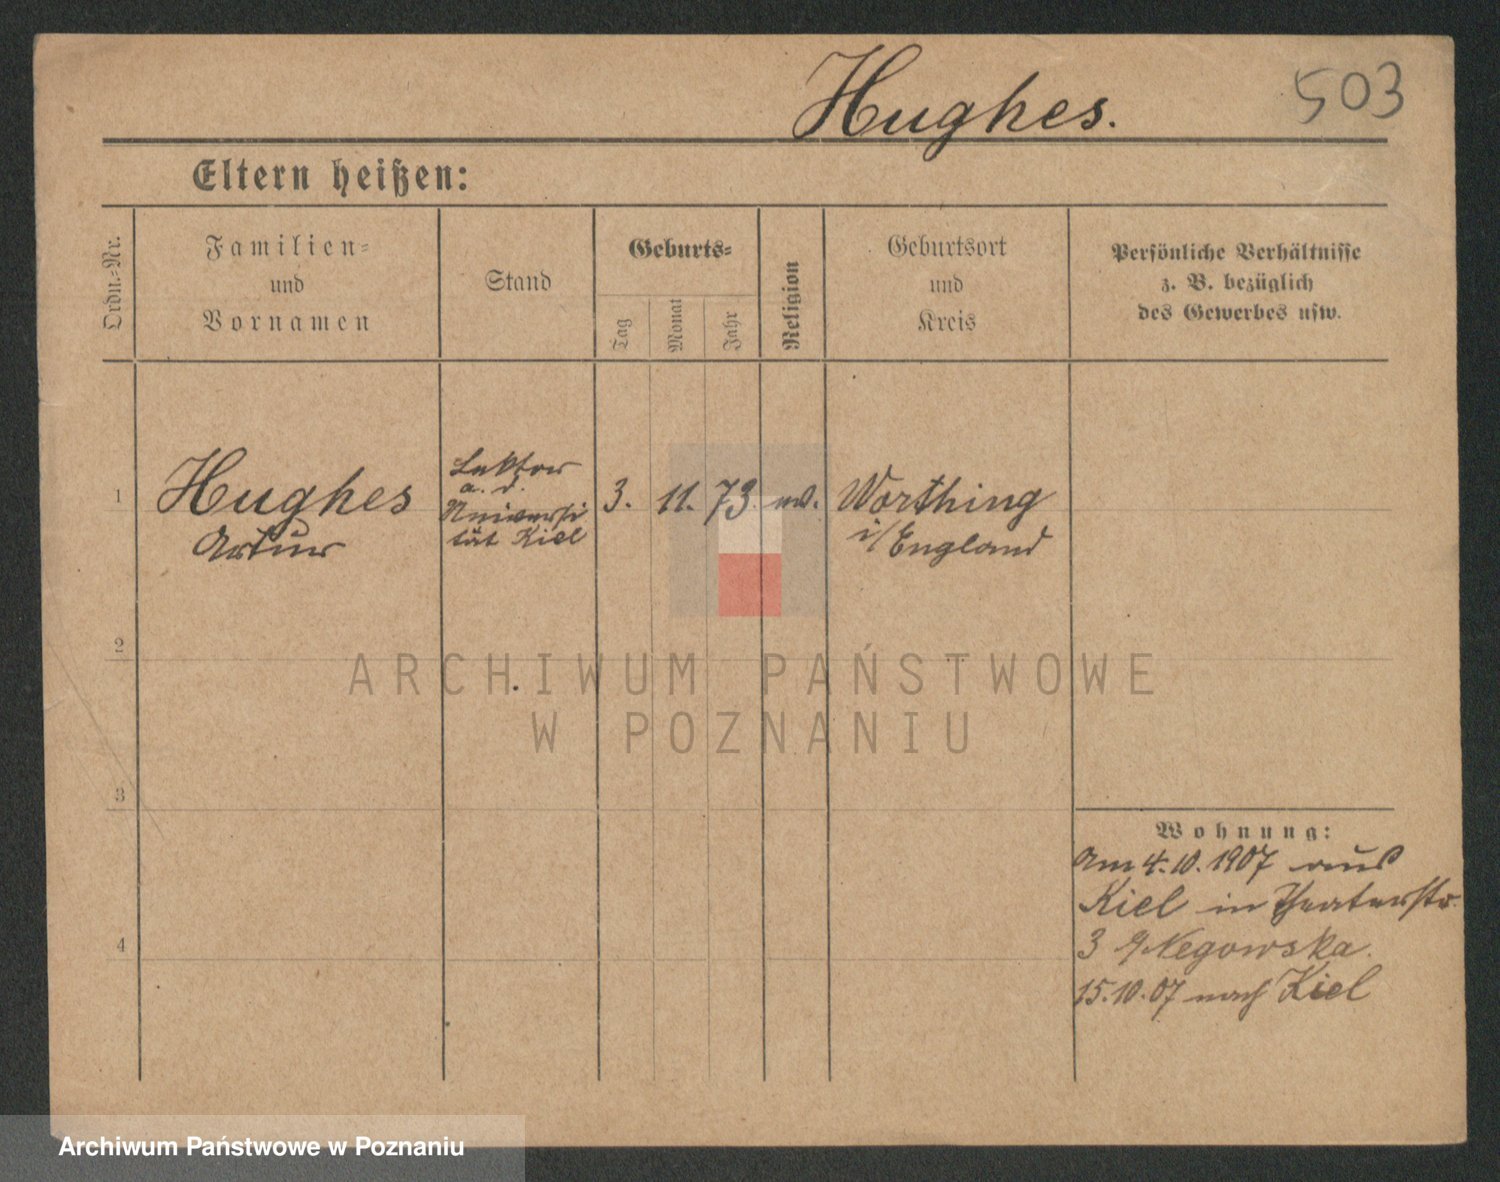 Hughes.
503
Eltern heißen:
Ordn.-Nr.
Familien-
und
Vornamen
Stand
Geburts-
Tag
Monat
Jahr
Religion
Geburtsort
und
Kreis
Persönliche Verhältnisse
z. B. bezüglich
des Gewerbes usw.
1
Hughes
Artur
Lektor
a. d.
Universi
tät Kiel
3.
11.
73.
ev.
Worthing
i/England
2
3
4
ARCHIWUM PAŃSTWOWE
W POZNANIU
Wohnung:
Am 4.10.1907 aus
Kiel in Theaterstr.
3
15.10.07 nach Kiel
Archiwum Państwowe w Poznaniu